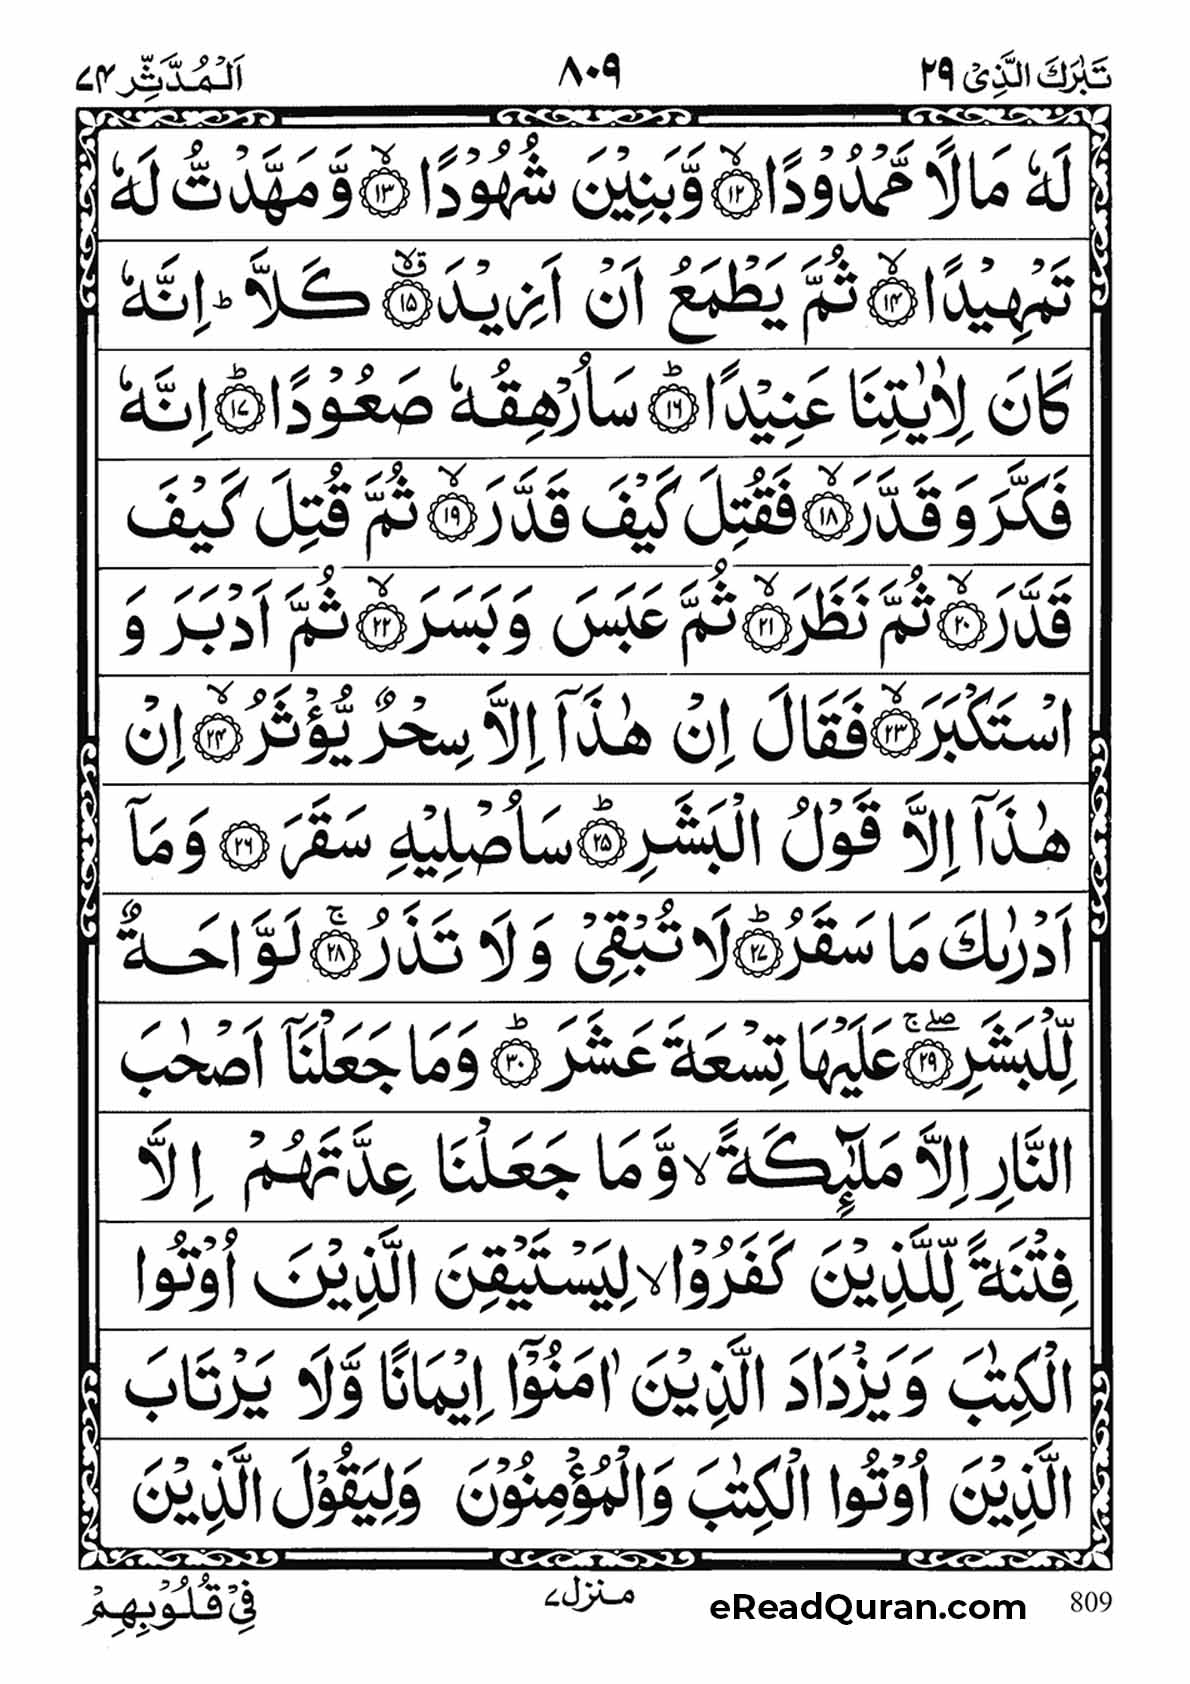 تَبٰرَكَ الَّذِیْ ۲۹ ۸۰۹ اَلْمُدَّثِّر ۷۴
لَهٗ مَالًا مَّمْدُوْدًا ۙ﴿۱۲﴾ وَّبَنِیْنَ شُهُوْدًا ۙ﴿۱۳﴾ وَّ مَهَّدْتُّ لَهٗ
تَمْهِیْدًا ۙ﴿۱۴﴾ ثُمَّ یَطْمَعُ اَنْ اَزِیْدَ ۙۗ﴿۱۵﴾ كَلَّا ؕ اِنَّهٗ
كَانَ لِاٰیٰتِنَا عَنِیْدًا ؕ﴿۱۶﴾ سَاُرْهِقُهٗ صَعُوْدًا ؕ﴿۱۷﴾ اِنَّهٗ
فَكَّرَ وَ قَدَّرَ ۙ﴿۱۸﴾ فَقُتِلَ كَیْفَ قَدَّرَ ۙ﴿۱۹﴾ ثُمَّ قُتِلَ كَیْفَ
قَدَّرَ ۙ﴿۲۰﴾ ثُمَّ نَظَرَ ۙ﴿۲۱﴾ ثُمَّ عَبَسَ وَ بَسَرَ ۙ﴿۲۲﴾ ثُمَّ اَدْبَرَ وَ
اسْتَكْبَرَ ۙ﴿۲۳﴾ فَقَالَ اِنْ هٰذَاۤ اِلَّا سِحْرٌ یُّؤْثَرُ ۙ﴿۲۴﴾ اِنْ
هٰذَاۤ اِلَّا قَوْلُ الْبَشَرِ ؕ﴿۲۵﴾ سَاُصْلِیْهِ سَقَرَ ﴿۲۶﴾ وَ مَاۤ
اَدْرٰىكَ مَا سَقَرُ ؕ﴿۲۷﴾ لَا تُبْقِیْ وَ لَا تَذَرُ ۚ﴿۲۸﴾ لَوَّاحَةٌ
لِّلْبَشَرِ ۖۚ﴿۲۹﴾ عَلَیْهَا تِسْعَةَ عَشَرَ ؕ﴿۳۰﴾ وَ مَا جَعَلْنَاۤ اَصْحٰبَ
النَّارِ اِلَّا مَلٰٓىِٕكَةً ۙ وَّ مَا جَعَلْنَا عِدَّتَهُمْ اِلَّا
فِتْنَةً لِّلَّذِیْنَ كَفَرُوْا ۙ لِیَسْتَیْقِنَ الَّذِیْنَ اُوْتُوا
الْكِتٰبَ وَ یَزْدَادَ الَّذِیْنَ اٰمَنُوْۤا اِیْمَانًا وَّ لَا یَرْتَابَ
الَّذِیْنَ اُوْتُوا الْكِتٰبَ وَ الْمُؤْمِنُوْنَ وَ لِیَقُوْلَ الَّذِیْنَ
فِیْ قُلُوْبِهِمْ منزل ۷ eReadQuran.com 809